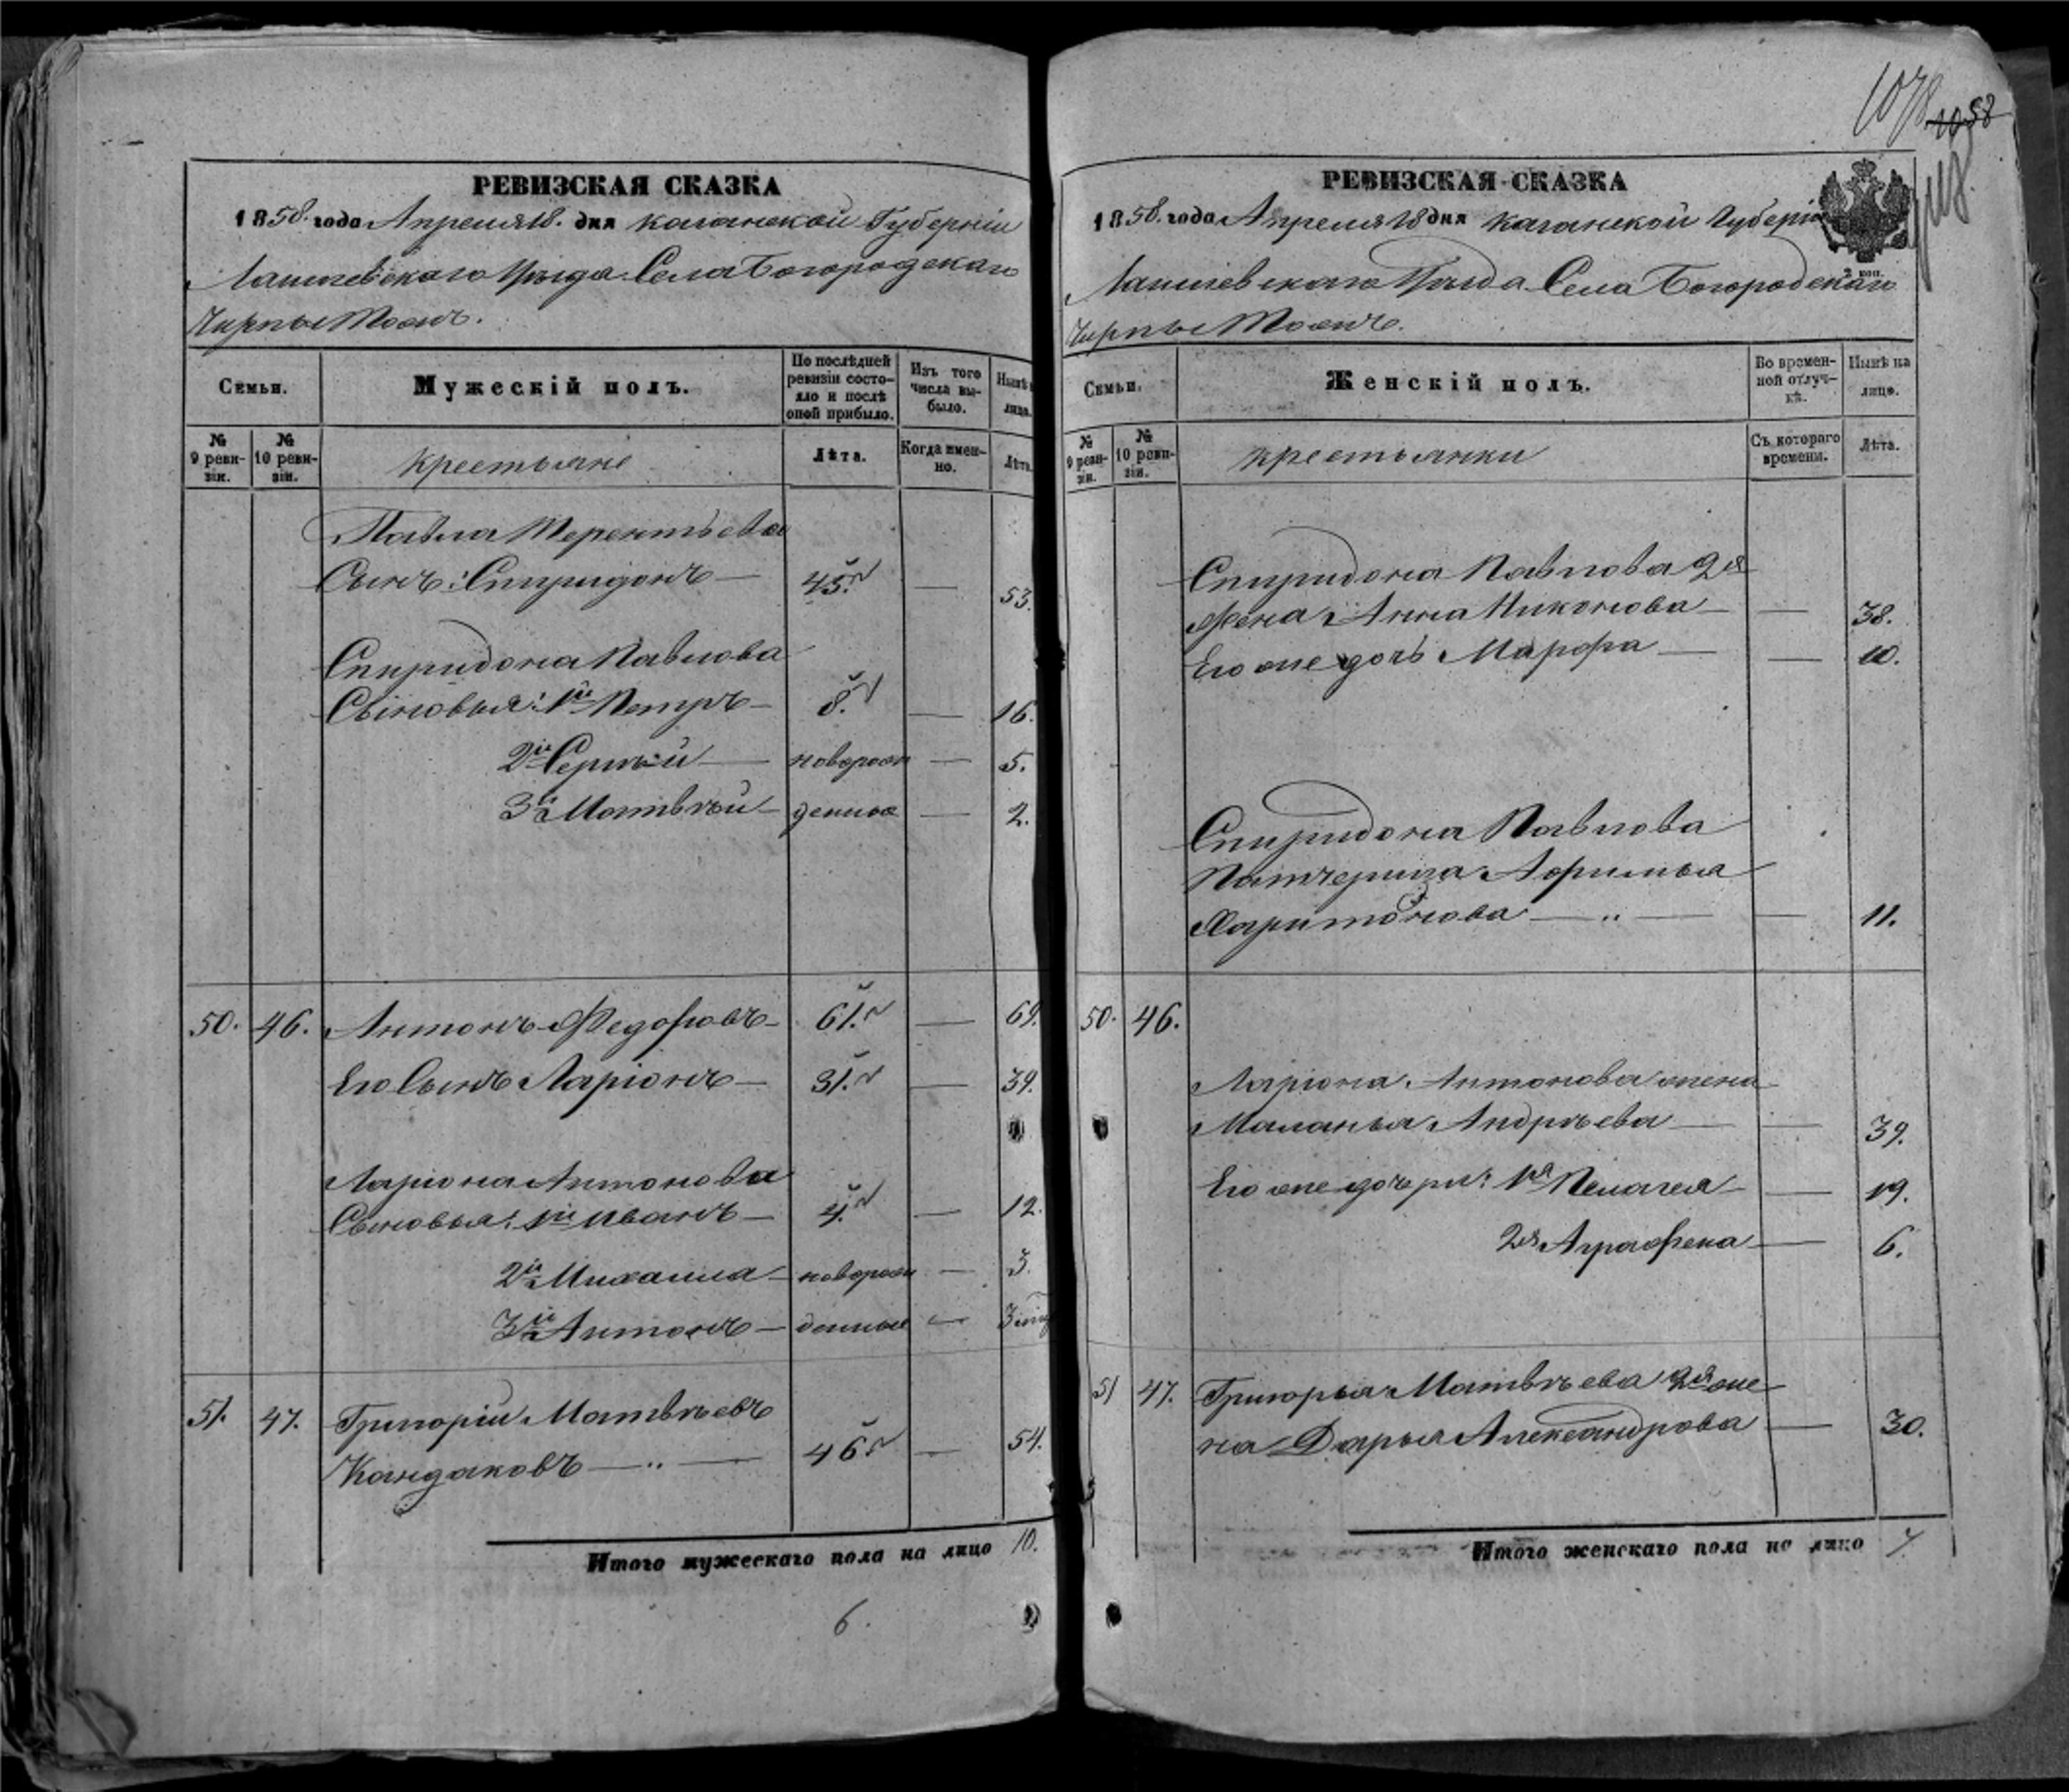 1078
1058
РЕВИЗСКАЯ СКАЗКА
1858. года Апреля 18. дня Казанской Губерніи
Лаишевскаго Уѣзда Села Богородскаго
Чирпы Тожъ.
Семьи.
Мужескій полъ.
По послѣдней ревизіи состояло и послѣ оной прибыло.
Изъ того числа выбыло.
Нынѣ на лицо.
№ 9 ревизіи.
№ 10 ревизіи.
Крестьяне
Лѣта.
Когда именно.
Лѣта.
Павла Терентьева
Сынъ: Спиридонъ — 45. — 53.
Спиридона Павлова
Сыновья: 1й Петръ — 8. — 16.
2й Сергѣй — новорож — 5.
3й Матвѣй — денные — 2.
50. 46. Антонъ Федоровъ — 61. — 69.
Его Сынъ Ларіонъ — 31. — 39.
Ларіона Антонова
Сыновья: 1й Иванъ — 4. — 12.
2й Михаила — новорож — 3.
3й Антонъ — денные —
51. 47. Григорій Матвѣевъ
Кандаковъ — „ — 46. — 54.
Итого мужескаго пола на лицо 10.
6.
РЕВИЗСКАЯ СКАЗКА
1858. года Апреля 18 дня Казанской Губерніи
2 коп.
Лаишевскаго Уѣзда Села Богородскаго
Чирпы Тожъ.
Семьи.
Женскій полъ.
Во временной отлучкѣ.
Нынѣ на лицо.
№ 9 ревизіи.
№ 10 ревизіи.
Крестьянки
Съ котораго времени.
Лѣта.
Спиридона Павлова 2я
Жена Анна Никонова — — 38.
Его же дочь Марфа — — 10.
Спиридона Павлова
Патчерица Афимья
Харитонова — „ — — 11.
50. 46.
Ларіона Антонова жена
Маланья Андрѣева — — 39.
Его же дочери: 1я Пелагея — — 19.
2я Аграфена — 6.
51 47. Григорья Матвѣева 2я же
на Дарья Александрова — 30.
Итого женскаго пола на лицо 7.